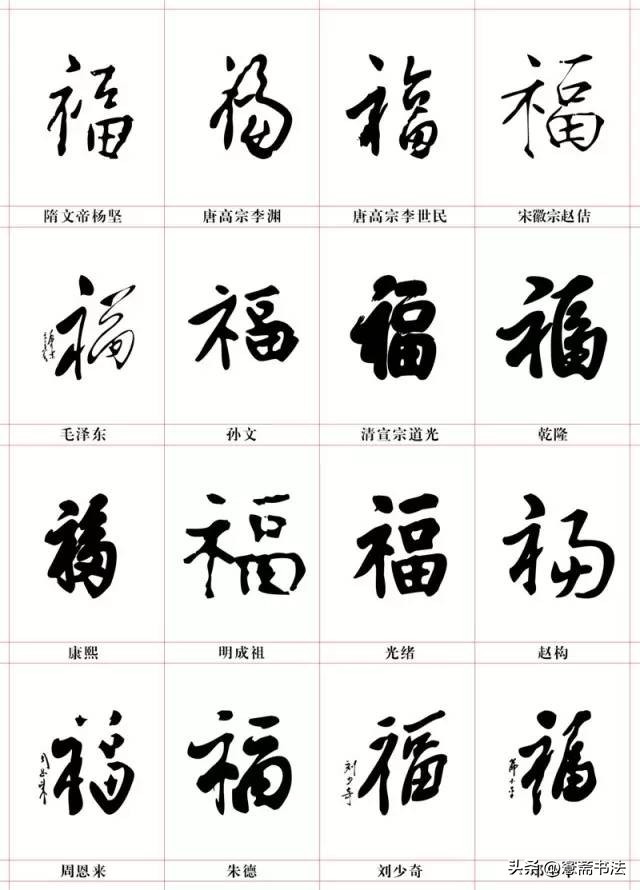 福 福 福 福
隋文帝杨坚 唐高宗李渊 唐高宗李世民 宋徽宗赵佶
福 福 福 福
毛泽东 孙文 清宣宗道光 乾隆
福 福 福 福
康熙 明成祖 光绪 赵构
福 福 福 福
周恩来
刘少奇
周恩来 朱德 刘少奇
头条@窻斋书法